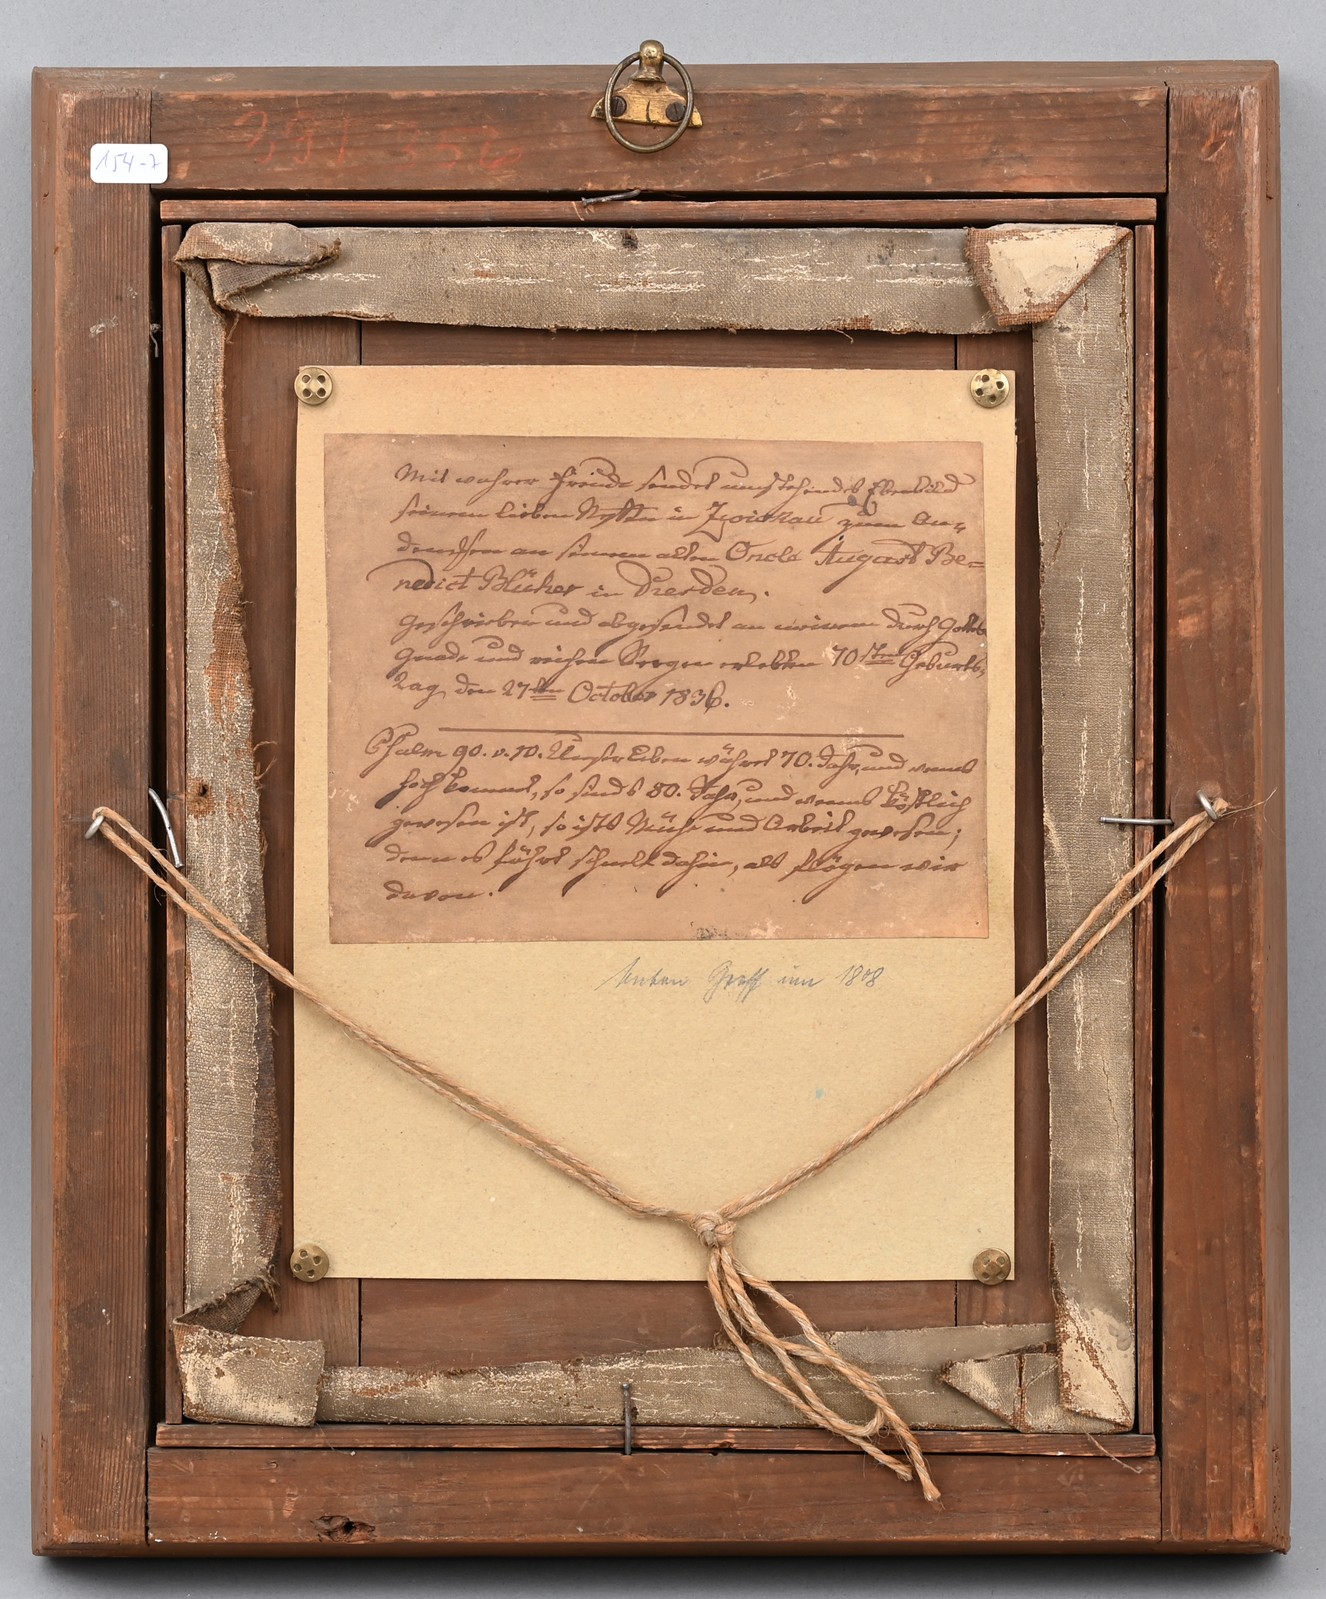 154-7
231 356
Mit wahrer Freude sendet umstehendes Ebenbild
seinem lieben in Zwickau zum An-
denken an seinen alten Oncle August Be-
nedict Blüher in Dresden.
Geschrieben und abgesendet an meinem durch Gottes
Gnade und reichen Seegen erlebten 70sten Geburts-
tag den 27sten October 1836.
Psalm 90. v. 10. Unser Leben währet 70. Jahr, und wenns
hoch kommt, so sinds 80. Jahr, und wenns köstlich
gewesen ist, so ists Mühe und Arbeit gewesen;
denn es fährt schnell dahin, als flögen wir
davon.
Anton Graff um 1808